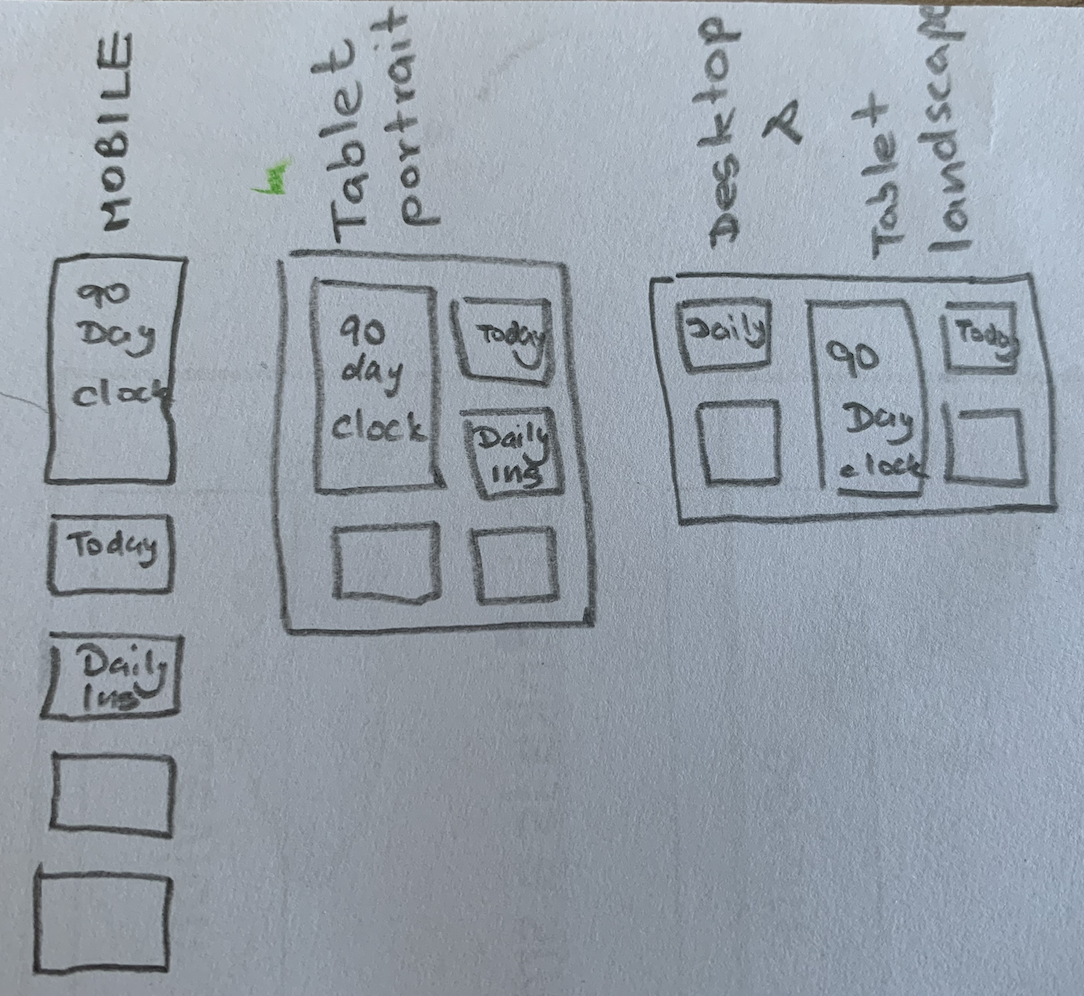 MOBILE
90
Day
clock
Today
Daily
Ins
Tablet
portrait
90
day
clock
Today
Daily
ins
Desktop
&
Tablet
landscape
Daily
90
Day
clock
Today